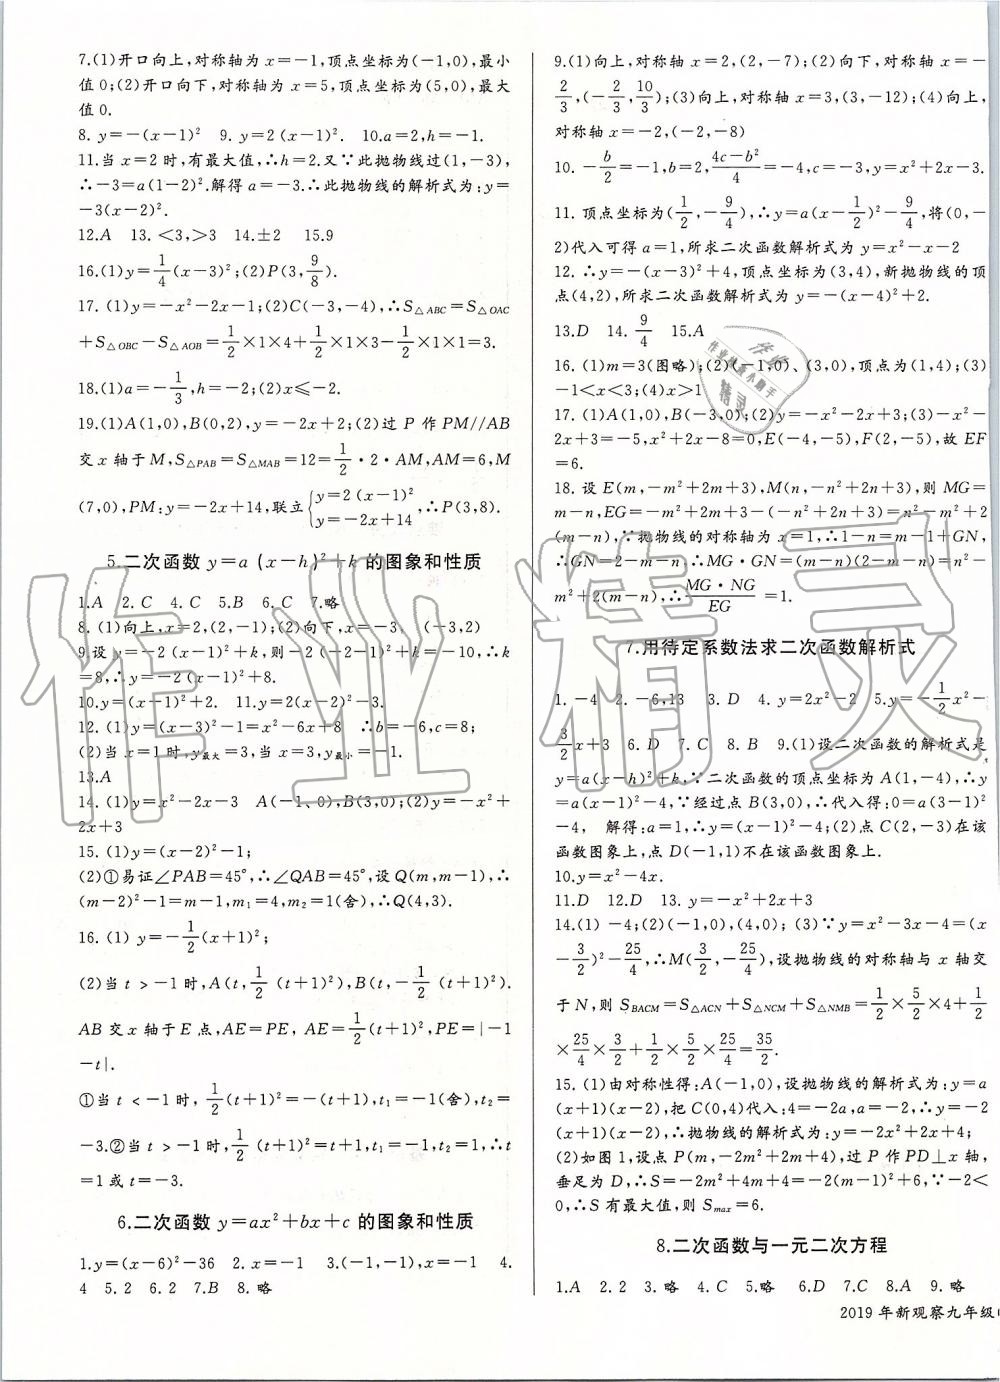 7.(1)开口向上,对称轴为 x=-1,顶点坐标为(-1,0),最小
值 0;(2)开口向下,对称轴为 x=5,顶点坐标为(5,0),最大
值 0.
8. y=-(x-1)²  9. y=2(x-1)².  10.a=2,h=-1.
11.当 x=2 时,有最大值,∴h=2.又∵此抛物线过(1,-3),
∴-3=a(1-2)².解得 a=-3.∴此抛物线的解析式为:y=
-3(x-2)².
12.A  13. <3,>3  14.±2  15.9
16.(1)y=1/4(x-3)²;(2)P(3,9/8).
17. (1)y=-x²-2x-1;(2)C(-3,-4),∴S△ABC=S△OAC
+S△OBC-S△AOB=1/2×1×4+1/2×1×3-1/2×1×1=3.
18.(1)a=-1/3,h=-2;(2)x≤-2.
19.(1)A(1,0),B(0,2),y=-2x+2;(2)过 P 作 PM//AB
交 x 轴于 M,S△PAB=S△MAB=12=1/2·2·AM,AM=6,M
(7,0),PM:y=-2x+14,联立{y=2(x-1)² y=-2x+14,∴P(3,8).
5.二次函数 y=a(x-h)²+k 的图象和性质
1.A  2.C  4.C  5.B  6.C  7.略
8.(1)向上,x=2,(2,-1);(2)向下,x=-3, (-3,2)
9.设 y=-2(x-1)²+k,则-2(-2-1)²+k=-10,∴k
=8,∴y=-2(x-1)²+8.
10.y=(x-1)²+2.  11.y=2(x-2)²
12.(1)y=(x-3)²-1=x²-6x+8 ∴b=-6,c=8;
(2)当 x=1 时,y最大=3,当 x=3,y最小=-1.
13.A
14.(1)y=x²-2x-3  A(-1,0),B(3,0);(2)y=-x²+
2x+3
15.(1)y=(x-2)²-1;
(2)①易证∠PAB=45°,∴∠QAB=45°,设 Q(m,m-1),∴
(m-2)²-1=m-1,m₁=4,m₂=1(舍),∴Q(4,3).
16.(1) y=-1/2(x+1)²;
(2)当 t>-1 时,A(t,1/2(t+1)²),B(t,-1/2(t+1)²).
AB 交 x 轴于 E 点,AE=PE, AE=1/2(t+1)²,PE=|-1
-t|.
①当 t<-1 时,1/2(t+1)²=-(t+1),t₁=-1(舍),t₂=
-3.②当 t>-1 时,1/2(t+1)²=t+1,t₁=-1,t₂=1,∴t
=1 或 t=-3.
6.二次函数 y=ax²+bx+c 的图象和性质
1.y=(x-6)²-36  2.x=-1  3.(-1,-1),x=-1  4.
4  5.2  6.2  7.B  8.略
9.(1)向上,对称轴 x=2,(2,-7);(2)向下,对称轴 x=-
2/3,(-2/3,10/3);(3)向上,对称轴 x=3,(3,-12);(4)向上,
对称轴 x=-2,(-2,-8)
10. -b/2=-1,b=2,4c-b²/4=-4,c=-3,y=x²+2x-3.
11. 顶点坐标为(1/2,-9/4),∴y=a(x-1/2)²-9/4,将(0,-
2)代入可得 a=1,所求二次函数解析式为 y=x²-x-2
12. ∴y=-(x-3)²+4,顶点坐标为(3,4),新抛物线的顶
点(4,2),所求二次函数解析式为 y=-(x-4)²+2.
13.D  14. 9/4  15.A
16. (1)m=3(图略);(2)(-1,0)、(3,0),顶点为(1,4);(3)
-1<x<3;(4)x>1
17. (1)A(1,0),B(-3,0);(2)y=-x²-2x+3;(3)-x²-
2x+3=-5,x²+2x-8=0,E(-4,-5),F(2,-5),故 EF
=6.
18. 设 E(m,-m²+2m+3),M(n,-n²+2n+3),则 MG=
m-n,EG=-m²+2m+3-(-n²+2n+3)=n²-m²+2
(m-n),∵抛物线的对称轴为 x=1,∴1-n=m-1+GN,
∴GN=2-m-n,∴MG·GN=(m-n)(2-m-n)=n²-
m²+2(m-n),∴MG·NG/EG=1.
7.用待定系数法求二次函数解析式
1. -4  2. -6,13  3.D  4. y=2x²-2  5.y=-1/2x²-
3/2x+3  6.D  7.C  8.B  9.(1)设二次函数的解析式是
y=a(x-h)²+k,∵二次函数的顶点坐标为 A(1,-4),∴y
=a(x-1)²-4,∵经过点 B(3,0),∴代入得:0=a(3-1)²
-4, 解得:a=1,∴y=(x-1)²-4;(2)点 C(2,-3)在该
函数图象上,点 D(-1,1)不在该函数图象上.
10.y=x²-4x.
11.D  12.D  13. y=-x²+2x+3
14.(1) -4;(2)(-1,0),(4,0); (3)∵y=x²-3x-4=(x
-3/2)²-25/4,∴M(3/2,-25/4),设抛物线的对称轴与 x 轴交
于 N,则 SBACM=S△ACN+S△NCM+S△NMB=1/2×5/2×4+1/2
×25/4×3/2+1/2×5/2×25/4=35/2.
15. (1)由对称性得:A(-1,0),设抛物线的解析式为:y=a
(x+1)(x-2),把 C(0,4)代入:4=-2a,a=-2,∴y=-2
(x+1)(x-2),∴抛物线的解析式为:y=-2x²+2x+4;
(2)如图 1,设点 P(m,-2m²+2m+4),过 P 作 PD⊥x 轴,
垂足为 D,∴S=-2m²+4m+4=-2(m-1)²+6,∵-2<
0,∴S 有最大值,则 Smax=6.
8.二次函数与一元二次方程
1.A  2.2  3.略  4.C  5.略  6.D  7.C  8.A  9.略
2019 年新观察九年级
作业精灵